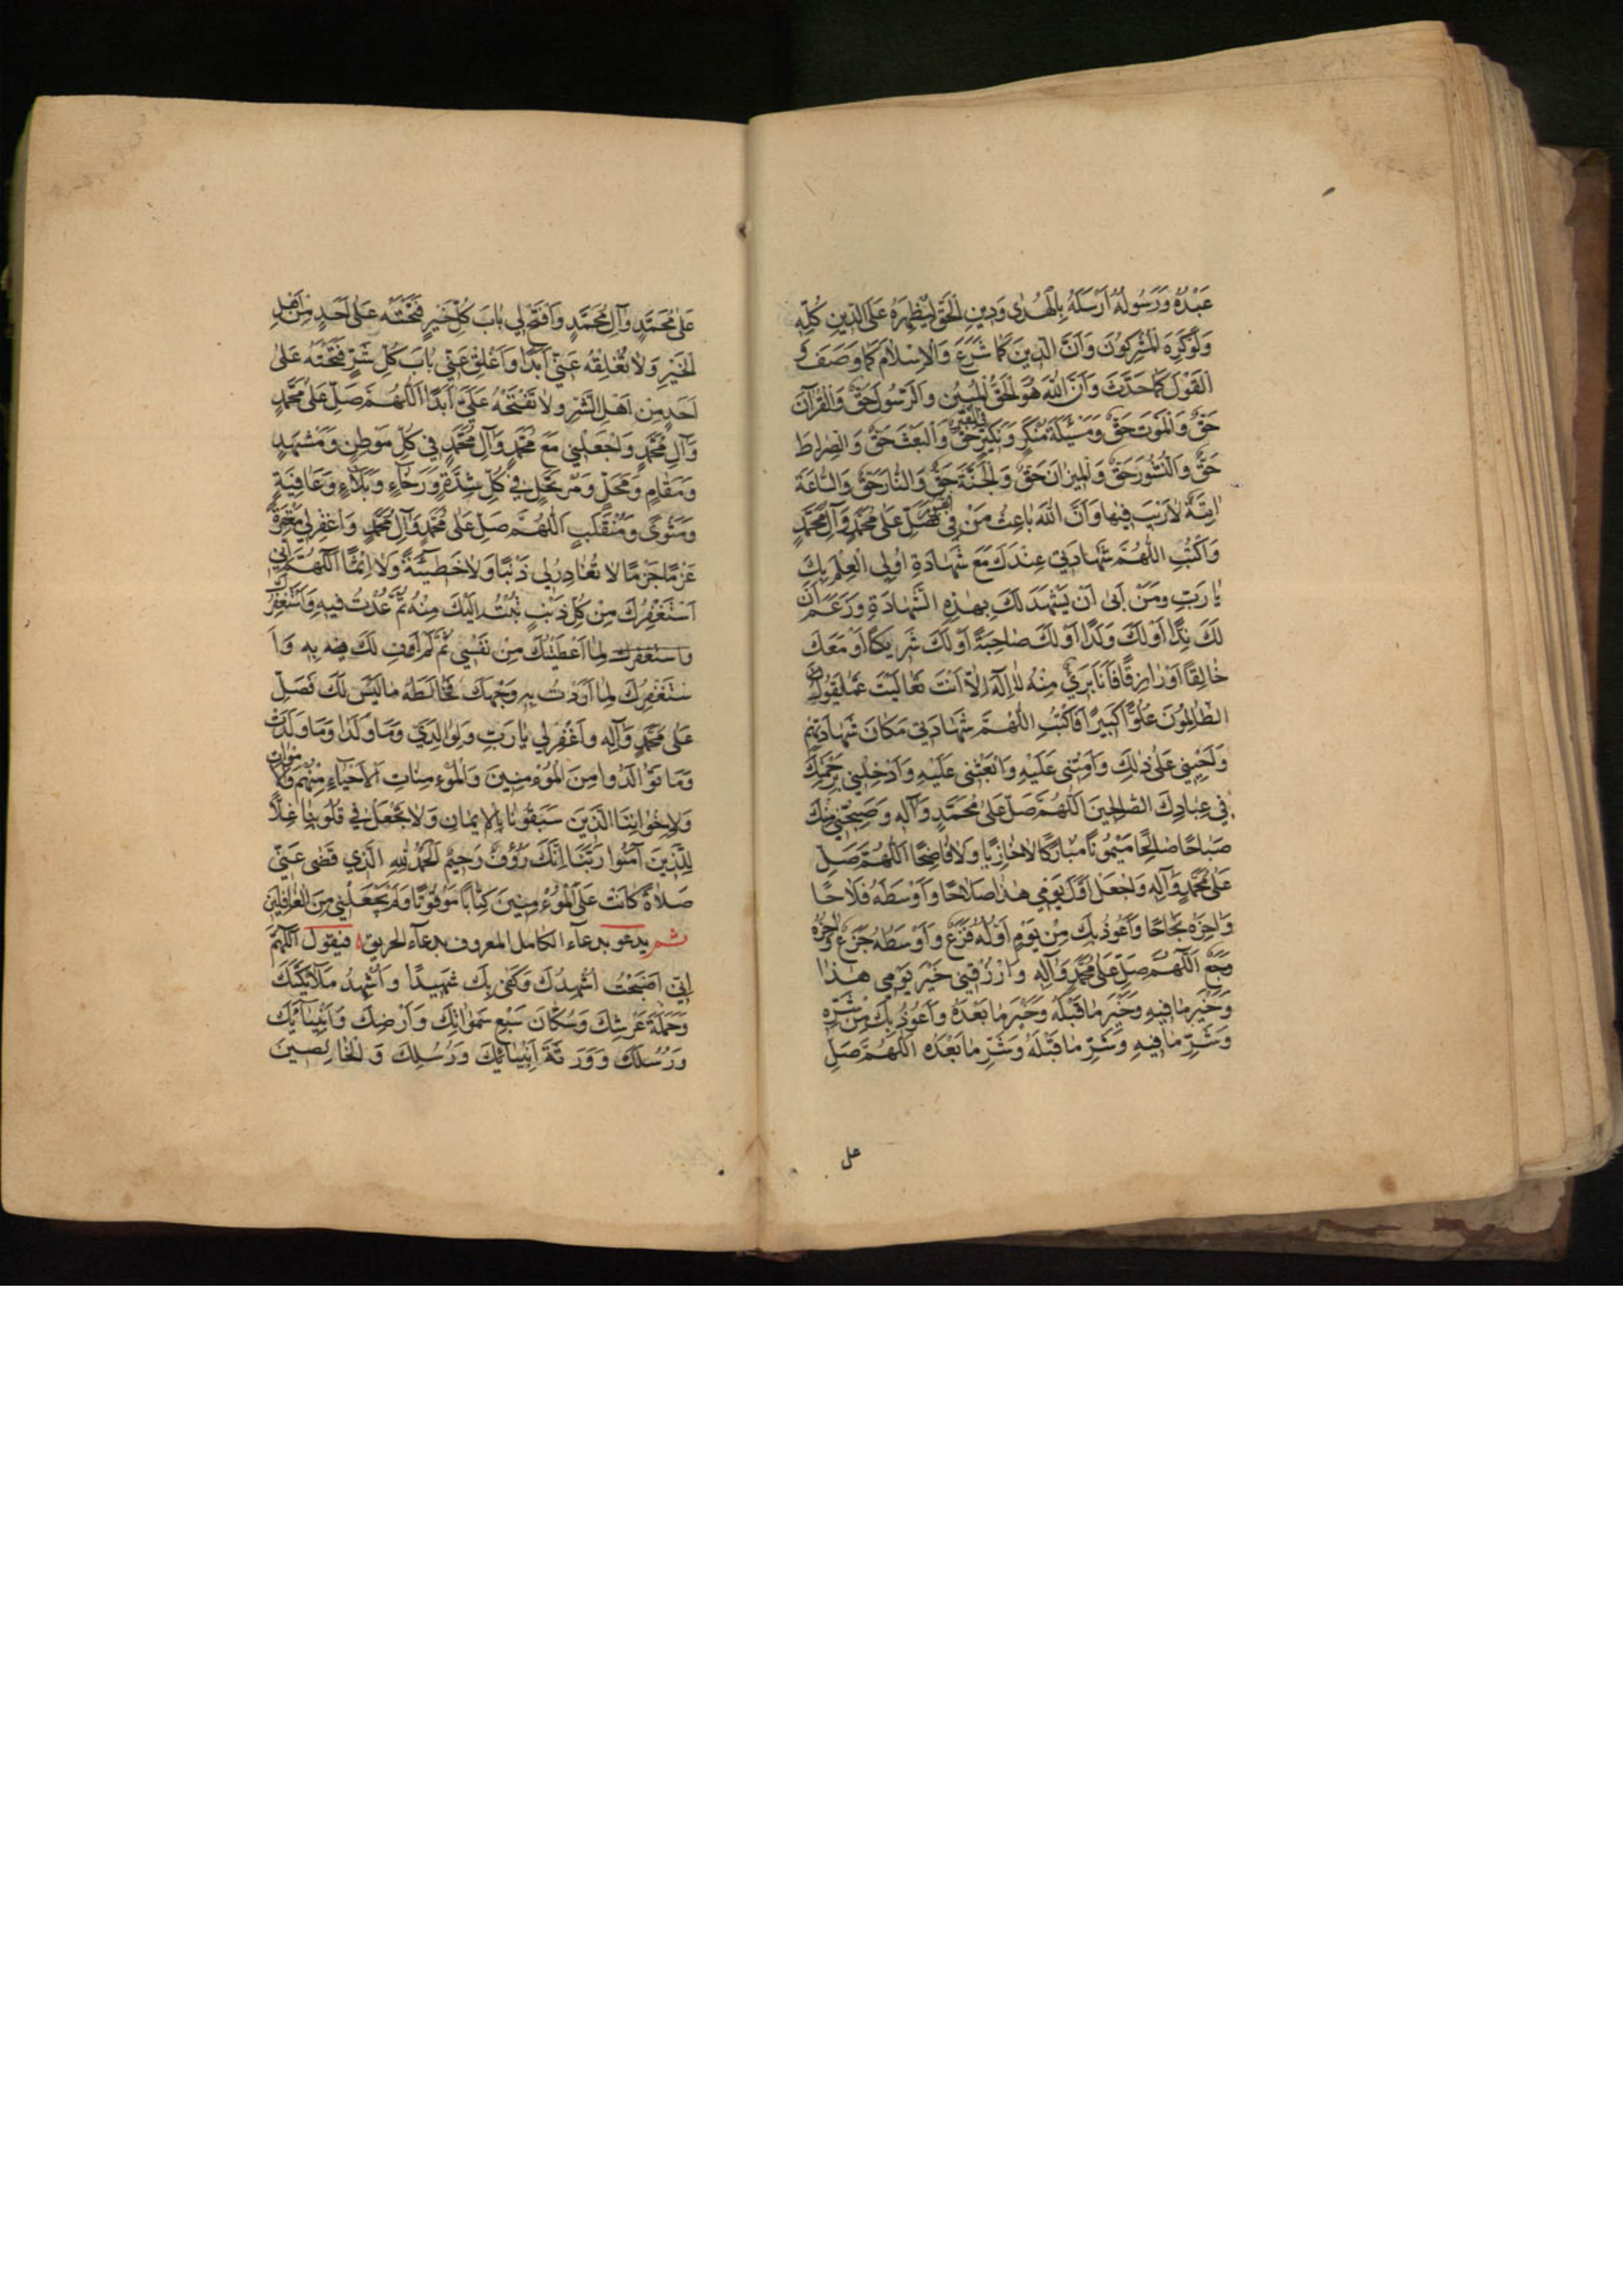 عَبْدُهُ وَرَسُولُهُ اَرْسَلَهُ بِالْهُدٰى وَدِينِ الْحَقِّ لِيُظْهِرَهُ عَلَى الدِّينِ كُلِّهِ
وَلَوْ كَرِهَ الْمُشْرِكُونَ وَاَنَّ الدِّينَ كَمَا شَرَعَ وَالْاِسْلَامَ كَمَا وَصَفَ وَ
الْقَوْلَ كَمَا حَدَّثَ وَاَنَّ اللّٰهَ هُوَ الْحَقُّ الْمُبِينُ وَالرَّسُولَ حَقٌّ وَالْقُرْآنَ
حَقٌّ وَالْمَوْتَ حَقٌّ وَمَسْئَلَةَ مُنْكَرٍ وَنَكِيرٍ فِي الْقَبْرِ حَقٌّ وَالْبَعْثَ حَقٌّ وَالصِّرَاطَ
حَقٌّ وَالنُّشُورَ حَقٌّ وَالْمِيزَانَ حَقٌّ وَالْجَنَّةَ حَقٌّ وَالنَّارَ حَقٌّ وَالسَّاعَةَ
اٰتِيَةٌ لَا رَيْبَ فِيهَا وَاَنَّ اللّٰهَ بَاعِثُ مَنْ فِي الْقُبُورِ فَصَلِّ عَلٰى مُحَمَّدٍ وَآلِ مُحَمَّدٍ
وَاكْتُبِ اللّٰهُمَّ شَهَادَتِي عِنْدَكَ مَعَ شَهَادَةِ اُولِي الْعِلْمِ بِكَ
يَا رَبِّ وَمَنْ اَبٰى اَنْ يَشْهَدَ لَكَ بِهٰذِهِ الشَّهَادَةِ وَزَعَمَ اَنَّ
لَكَ نِدًّا اَوْ لَكَ وَلَدًا اَوْ لَكَ صَاحِبَةً اَوْ لَكَ شَرِيكًا اَوْ مَعَكَ
خَالِقًا اَوْ رَازِقًا فَاَنَا بَرِيءٌ مِنْهُ لَا اِلٰهَ اِلَّا اَنْتَ تَعَالَيْتَ عَمَّا يَقُولُ
الظَّالِمُونَ عُلُوًّا كَبِيرًا فَاكْتُبِ اللّٰهُمَّ شَهَادَتِي مَكَانَ شَهَادَتِهِمْ
وَاَحْيِنِي عَلٰى ذٰلِكَ وَاَمِتْنِي عَلَيْهِ وَابْعَثْنِي عَلَيْهِ وَاَدْخِلْنِي بِرَحْمَتِكَ
فِي عِبَادِكَ الصَّالِحِينَ اَللّٰهُمَّ صَلِّ عَلٰى مُحَمَّدٍ وَآلِهِ وَصَبِّحْنِي مِنْكَ
صَبَاحًا صَالِحًا مَيْمُونًا مُبَارَكًا لَا خَازِيًا وَلَا فَاضِحًا اَللّٰهُمَّ صَلِّ
عَلٰى مُحَمَّدٍ وَآلِهِ وَاجْعَلْ اَوَّلَ يَوْمِي هٰذَا صَلَاحًا وَاَوْسَطَهُ فَلَاحًا
وَاٰخِرَهُ نَجَاحًا وَاَعُوذُ بِكَ مِنْ يَوْمٍ اَوَّلُهُ فَزَعٌ وَاَوْسَطُهُ جَزَعٌ وَاٰخِرُهُ
وَجَعٌ اَللّٰهُمَّ صَلِّ عَلٰى مُحَمَّدٍ وَآلِهِ وَارْزُقْنِي خَيْرَ يَوْمِي هٰذَا
وَخَيْرَ مَا فِيهِ وَخَيْرَ مَا قَبْلَهُ وَخَيْرَ مَا بَعْدَهُ وَاَعُوذُ بِكَ مِنْ شَرِّهِ
وَشَرِّ مَا فِيهِ وَشَرِّ مَا قَبْلَهُ وَشَرِّ مَا بَعْدَهُ اَللّٰهُمَّ صَلِّ
عل
عَلٰى مُحَمَّدٍ وَآلِ مُحَمَّدٍ وَافْتَحْ لِي بَابَ كُلِّ خَيْرٍ فَتَحْتَهُ عَلٰى اَحَدٍ مِنْ اَهْلِ
الْخَيْرِ وَلَا تُغْلِقْهُ عَنِّي اَبَدًا وَاَغْلِقْ عَنِّي بَابَ كُلِّ شَرٍّ فَتَحْتَهُ عَلٰى
اَحَدٍ مِنْ اَهْلِ الشَّرِّ وَلَا تَفْتَحْهُ عَلَيَّ اَبَدًا اَللّٰهُمَّ صَلِّ عَلٰى مُحَمَّدٍ
وَآلِ مُحَمَّدٍ وَاجْعَلْنِي مَعَ مُحَمَّدٍ وَآلِ مُحَمَّدٍ فِي كُلِّ مَوْطِنٍ وَمَشْهَدٍ
وَمَقَامٍ وَمَحَلٍّ وَمُرْتَحَلٍ فِي كُلِّ شِدَّةٍ وَرَخَاءٍ وَبَلَاءٍ وَعَافِيَةٍ
وَمَثْوًى وَمُنْقَلَبٍ اَللّٰهُمَّ صَلِّ عَلٰى مُحَمَّدٍ وَآلِ مُحَمَّدٍ وَاغْفِرْ لِي مَغْفِرَةً
عَزْمًا جَزْمًا لَا تُغَادِرُ لِي ذَنْبًا وَلَا خَطِيئَةً وَلَا اِثْمًا اَللّٰهُمَّ اِنِّي
اَسْتَغْفِرُكَ مِنْ كُلِّ ذَنْبٍ تُبْتُ اِلَيْكَ مِنْهُ ثُمَّ عُدْتُ فِيهِ وَاَسْتَغْفِرُكَ
واستغفرك لِمَا اَعْطَيْتُكَ مِنْ نَفْسِي ثُمَّ لَمْ اَوفِ لَكَ بِهِ وَاَ
سْتَغْفِرُكَ لِمَا اَرَدْتُ بِهِ وَجْهَكَ فَخَالَطَهُ مَا لَيْسَ لَكَ فَصَلِّ
عَلٰى مُحَمَّدٍ وَآلِهِ وَاغْفِرْ لِي يَا رَبِّ وَلِوَالِدَيَّ وَمَا وَلَدَا وَمَا وَلَدْتُ
وَمَا تَوَالَدُوا مِنَ الْمُؤْمِنِينَ وَالْمُؤْمِنَاتِ الْاَحْيَاءِ مِنْهُمْ وَالْاَمْوَاتِ
وَلِاِخْوَانِنَا الَّذِينَ سَبَقُونَا بِالْاِيمَانِ وَلَا تَجْعَلْ فِي قُلُوبِنَا غِلًّا
لِلَّذِينَ آمَنُوا رَبَّنَا اِنَّكَ رَؤُفٌ رَحِيمٌ اَلْحَمْدُ لِلّٰهِ الَّذِي قَضٰى عَنِّي
صَلَاةً كَانَتْ عَلَى الْمُؤْمِنِينَ كِتَابًا مَوْقُوتًا وَلَمْ يَجْعَلْنِي مِنَ الْغَافِلِينَ
ثم يدعو بدعاء الكامل المعروف بدعاء الحريق فيقول اَللّٰهُمَّ
اِنِّي اَصْبَحْتُ اُشْهِدُكَ وَكَفٰى بِكَ شَهِيدًا وَاُشْهِدُ مَلَائِكَتَكَ
وَحَمَلَةَ عَرْشِكَ وَسُكَّانَ سَبْعِ سَمٰوَاتِكَ وَاَرْضِكَ وَاَنْبِيَائِكَ
وَرُسُلَكَ وَوَرَثَةَ اَنْبِيَائِكَ وَرُسُلِكَ وَالْخَالِصِينَ